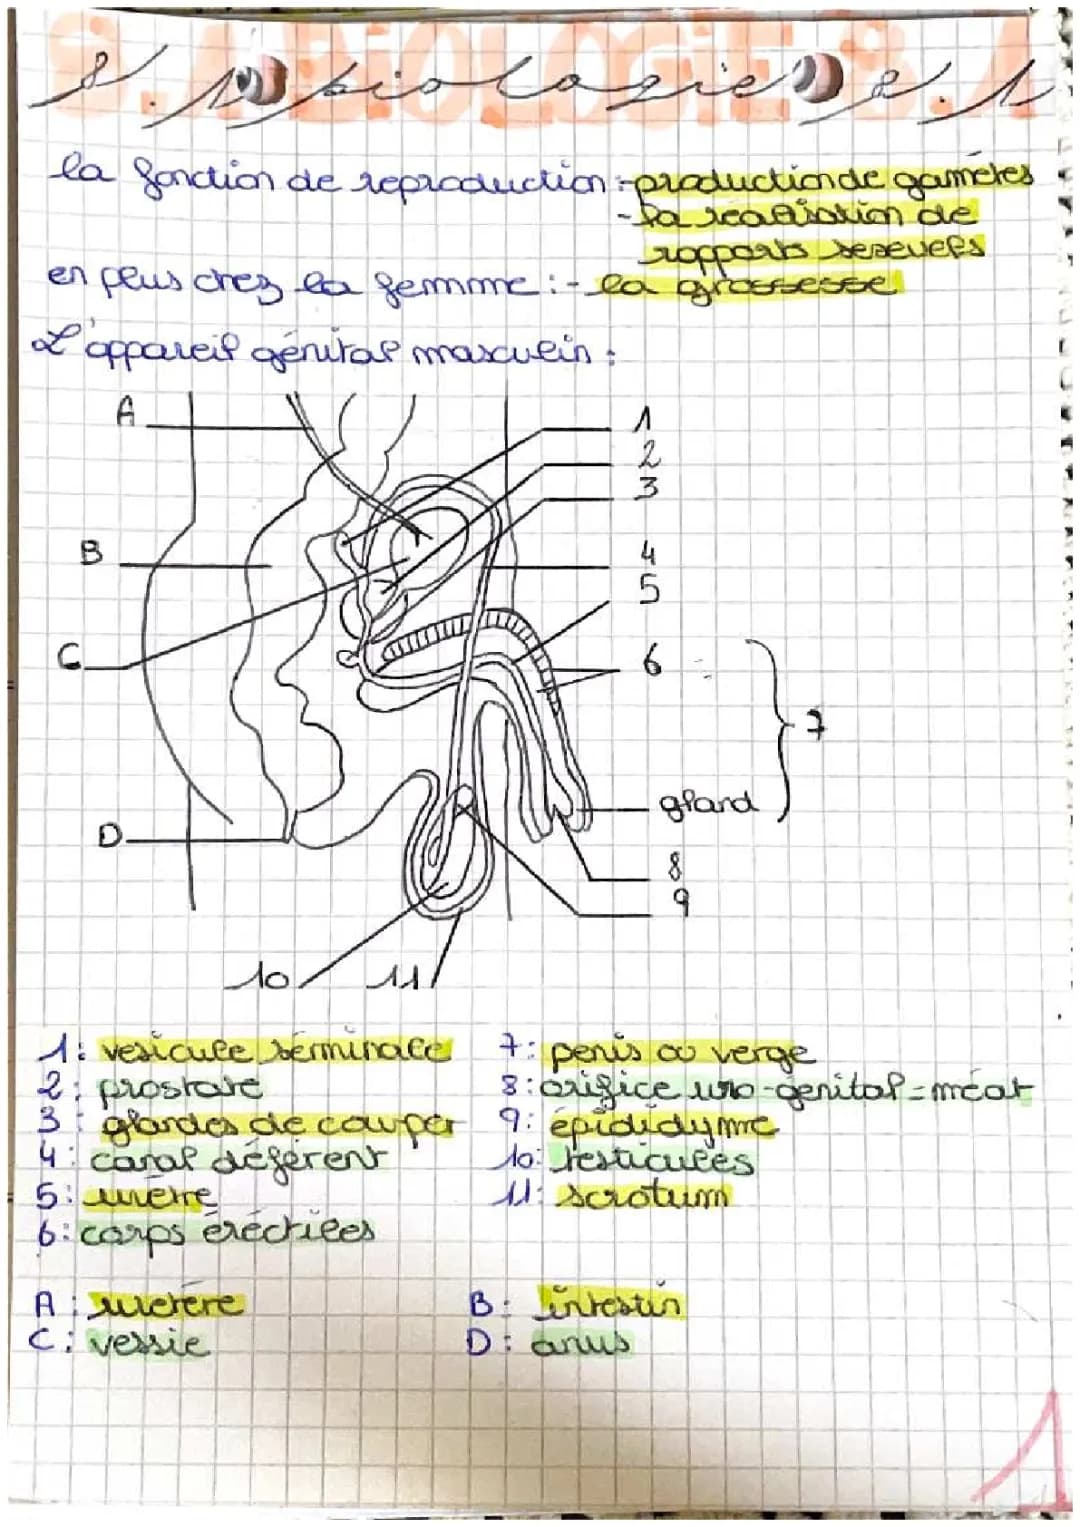 8.1 BIOLOGIE 8.1
8.1 biologie 8.1
la fonction de reproduction :-production de gamètes
-la realisation de
rapports sexuels
en plus chez la femme :- la grossesse
L'appareil génital masculin :
A
1
2
3
B
4
5
C
6
7
D
gland
8
9
10
11
1: vesicule séminale
2: prostate
3: glandes de cowper
4: canal déférent
5: urètre
6: corps éréctiles
7: penis ou verge
8: orifice uro-genital = méat
9: épididyme
10: testicules
11: scrotum
A: uretère
B: intestin
C: vessie
D: anus
1